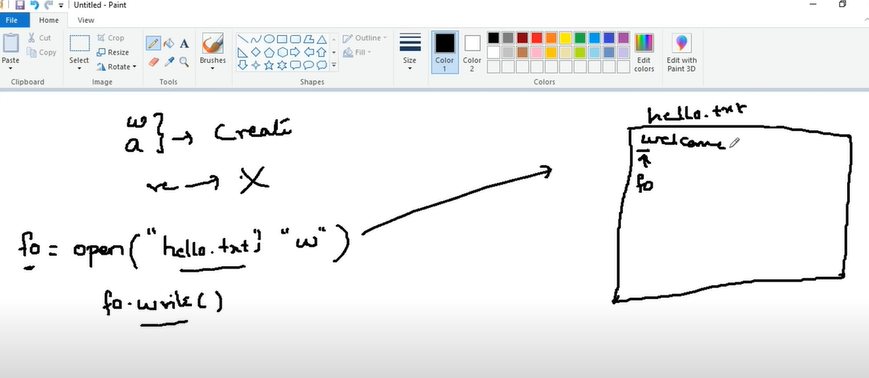 Untitled - Paint
File Home View
Cut
Copy
Paste
Clipboard
Select
Crop
Resize
Rotate
Image
Tools
Brushes
Outline
Fill
Shapes
Size
Color 1
Color 2
Edit colors
Colors
Edit with Paint 3D
w
a } → Create
r → X
fo = open("hello.txt", "w")
fo.write()
hello.txt
welcome
fo